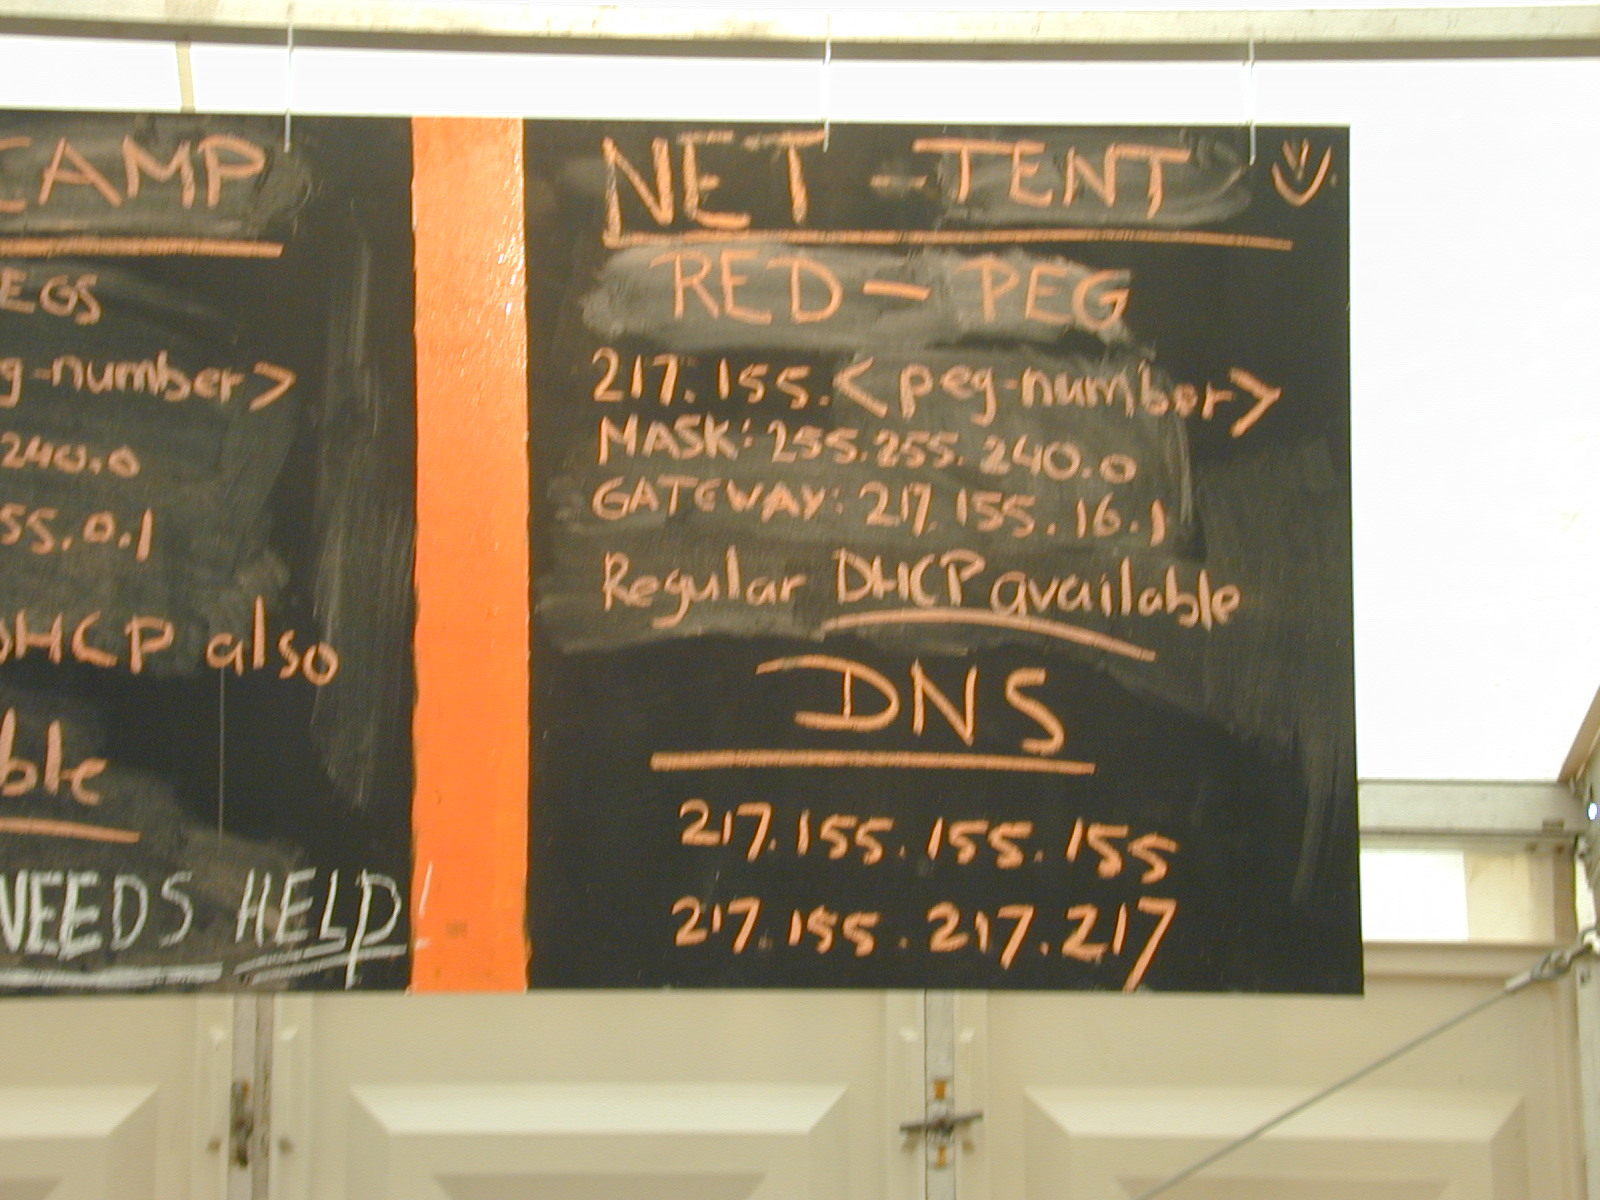 CAMP
EGS
g-number>
240.0
55.0.1
DHCP also
ble
NEEDS HELP
NET-TENT
RED-PEG
217.155.<peg-number>
MASK: 255.255.240.0
GATEWAY: 217.155.16.1
Regular DHCP available
DNS
217.155.155.155
217.155.217.217